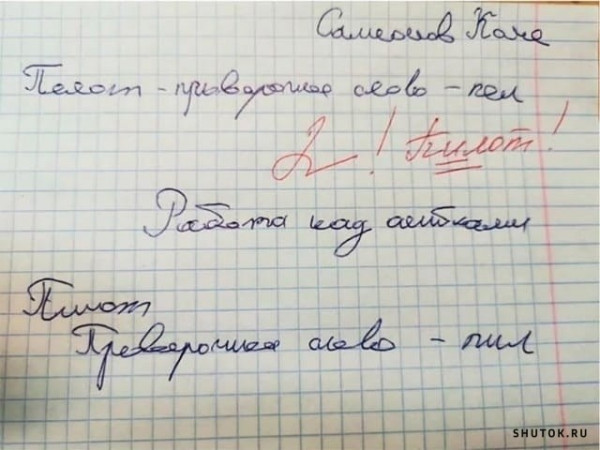 Самсонов Коля
Пелот - прыверочное слово - пел
2! Пилот!
Работа над ашибками
Пилот
Преверочное слово - пил
SHUTOK.RU